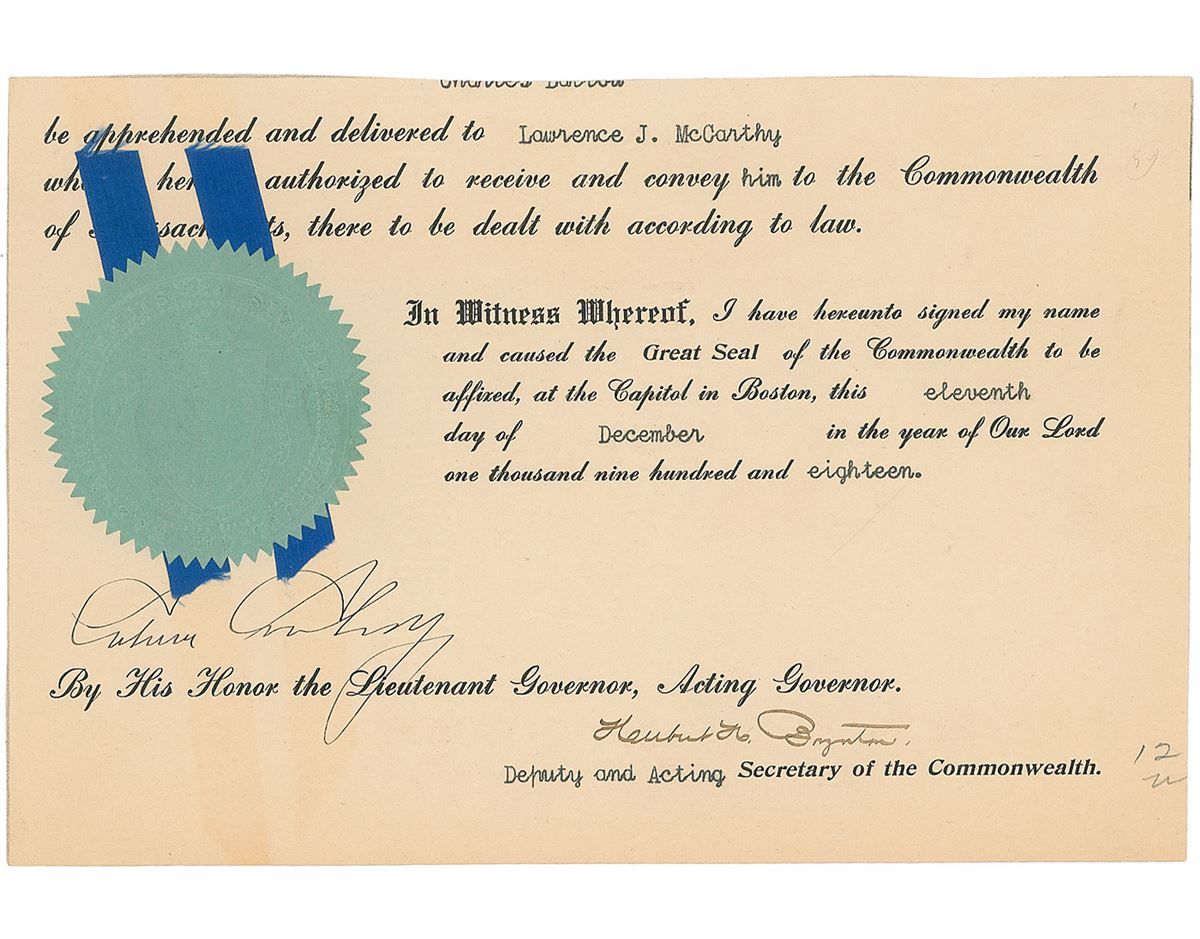 Charles
be apprehended and delivered to Lawrence J. McCarthy
wh her authorized to receive and convey him to the Commonwealth
of sac ts, there to be dealt with according to law.
In Witness Whereof, I have hereunto signed my name
and caused the Great Seal of the Commonwealth to be
affixed, at the Capitol in Boston, this eleventh
day of December in the year of Our Lord
one thousand nine hundred and eighteen.
By His Honor the Lieutenant Governor, Acting Governor.
Herbert H. Boynton.
Deputy and Acting Secretary of the Commonwealth.
12